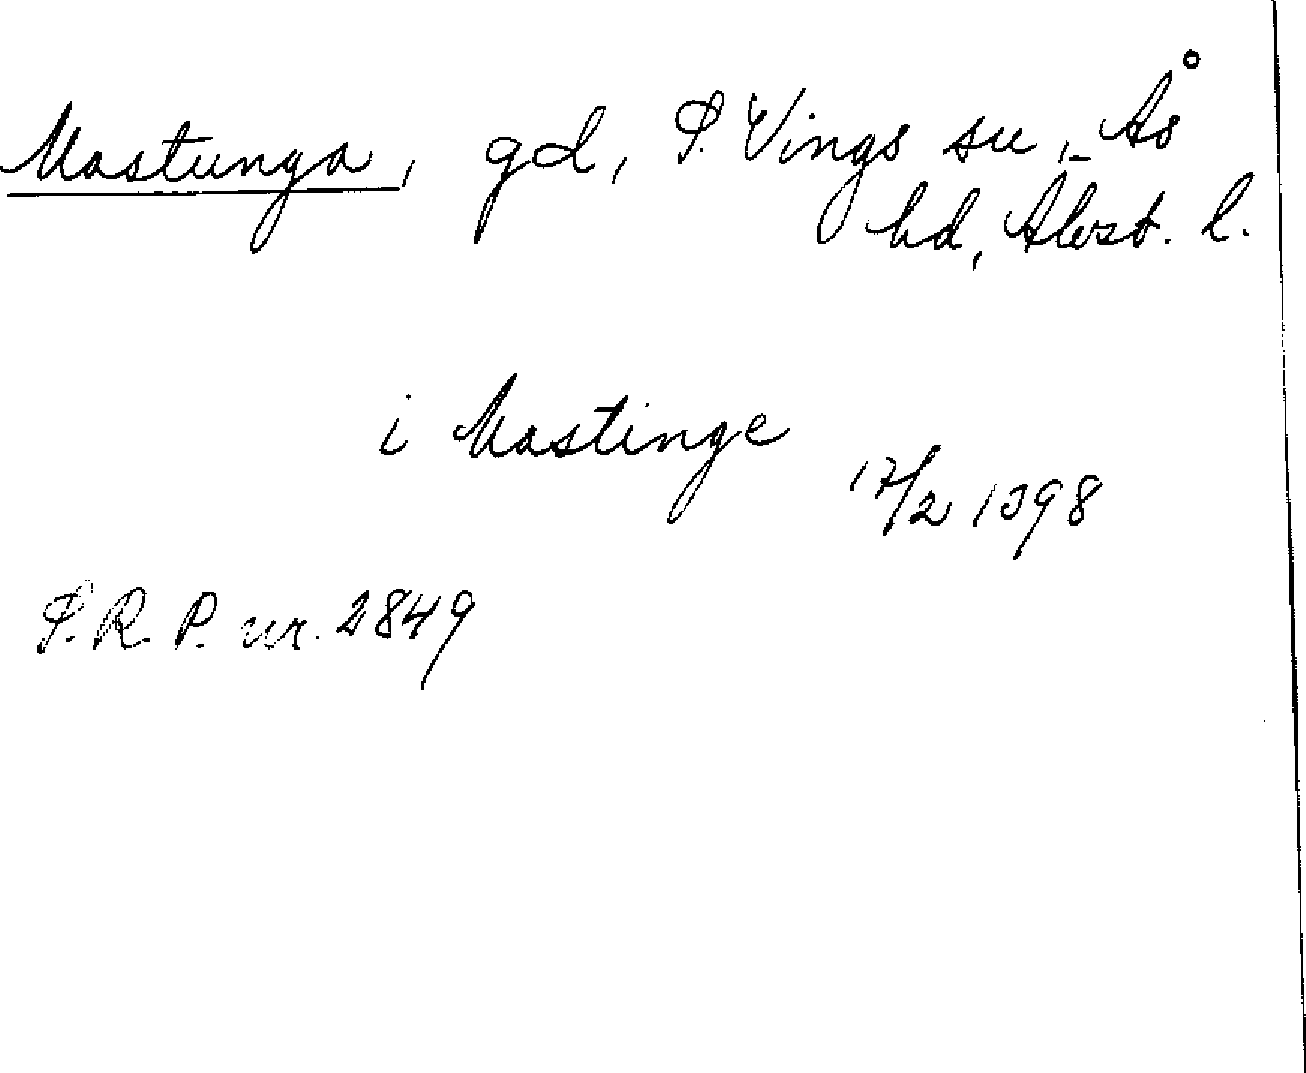 Mastunga, gd, S. Vings sn, Ås
hd, Älvsb. l.
i Mastinge
17/2 1398
S.R.P. nr. 2849